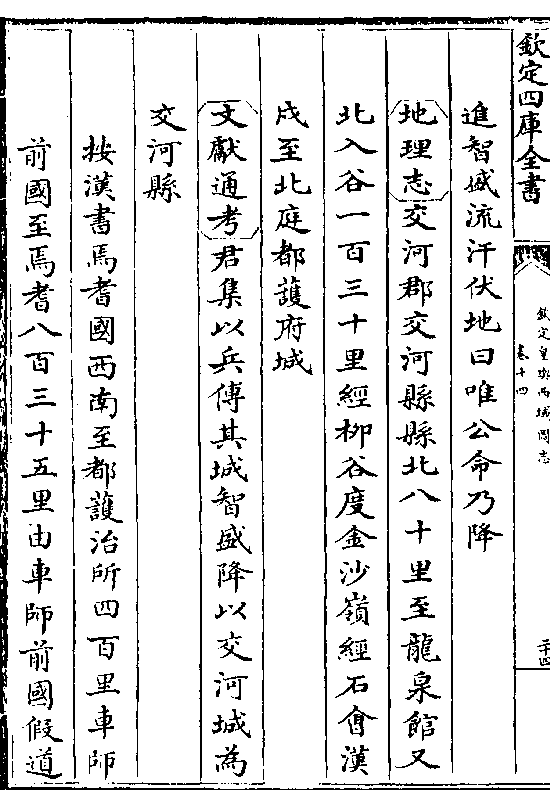 欽定四庫全書
欽定皇輿西域圖志
卷十四
二十四
進智盛流汗伏地曰唯公命乃降
地理志交河郡交河縣縣北八十里至龍泉館又
北入谷一百三十里經柳谷度金沙嶺經石㑹漢
戍至北庭都護府城
文獻通考君集以兵傅其城智盛降以交河城為
交河縣
按漢書焉耆國西南至都護治所四百里車師
前國至焉耆八百三十五里由車師前國假道